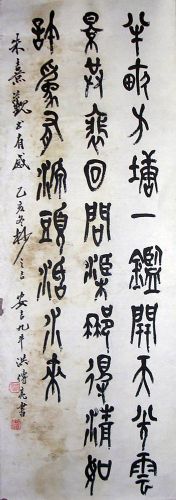 半畝方塘一鑑開天光雲
景共裵回問渠那得清如
許爲有源頭活水來
朱熹觀書有感 乙亥冬杪 洪 書